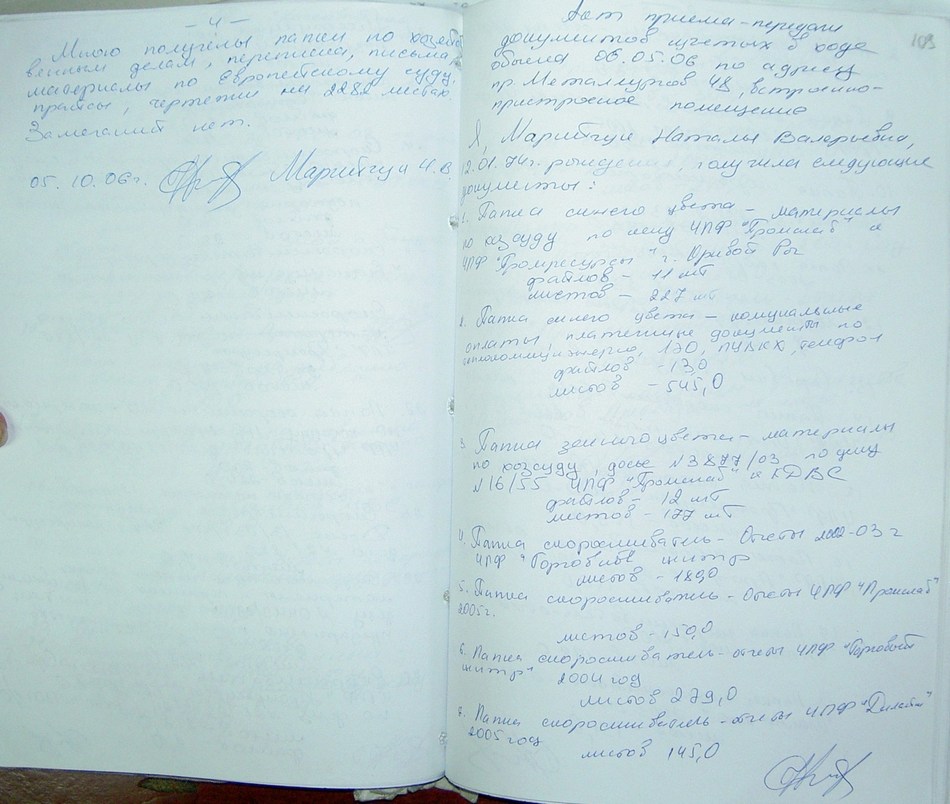 - 4 -
Мною получены папки по хозяйст
венным делам, переписка, письма,
материалы по Европейскому суду,
прайсы, чертежи на 2282 листах.
Замечаний нет.
05.10.06г. Маритчул Н.В.
109
Акт приема-передачи
документов изъятых в ходе
обыска 06.05.06 по адресу
пр. Металлургов 48, встроенно-
пристроеное помещение
Я, Наталья Валерьевна,
12.01.74г. рождения, получила следующие
документы:
1. Папка синего цвета - материалы
по хозсуду по иску ЧПФ "Промснаб" к
ЧПФ "Промресурсы" г. Кривой Рог
файлов - 11 шт
листов - 227 шт
2. Папка синего цвета - комунальные
оплаты, платежные документы по
телефон
файлов - 13,0
листов - 545,0
3. Папка зеленого цвета - материалы
по хозсуду, досье N 3877/03 по делу
N 16/55 ЧПФ "Промснаб" к КДВС
файлов - 12 шт
листов - 177 шт
4. Папка скоросшиватель - Отчеты 2002-03 г
ЧПФ "Торговый центр
листов - 189,0
5. Папка скоросшиватель - Отчеты ЧПФ "Промснаб"
2005г.
листов - 150,0
6. Папка скоросшиватель - отчеты ЧПФ "Торговый
центр" 2004 год
листов 279,0
7. Папка скоросшиватель - отчеты ЧПФ
2005 год
листов 145,0